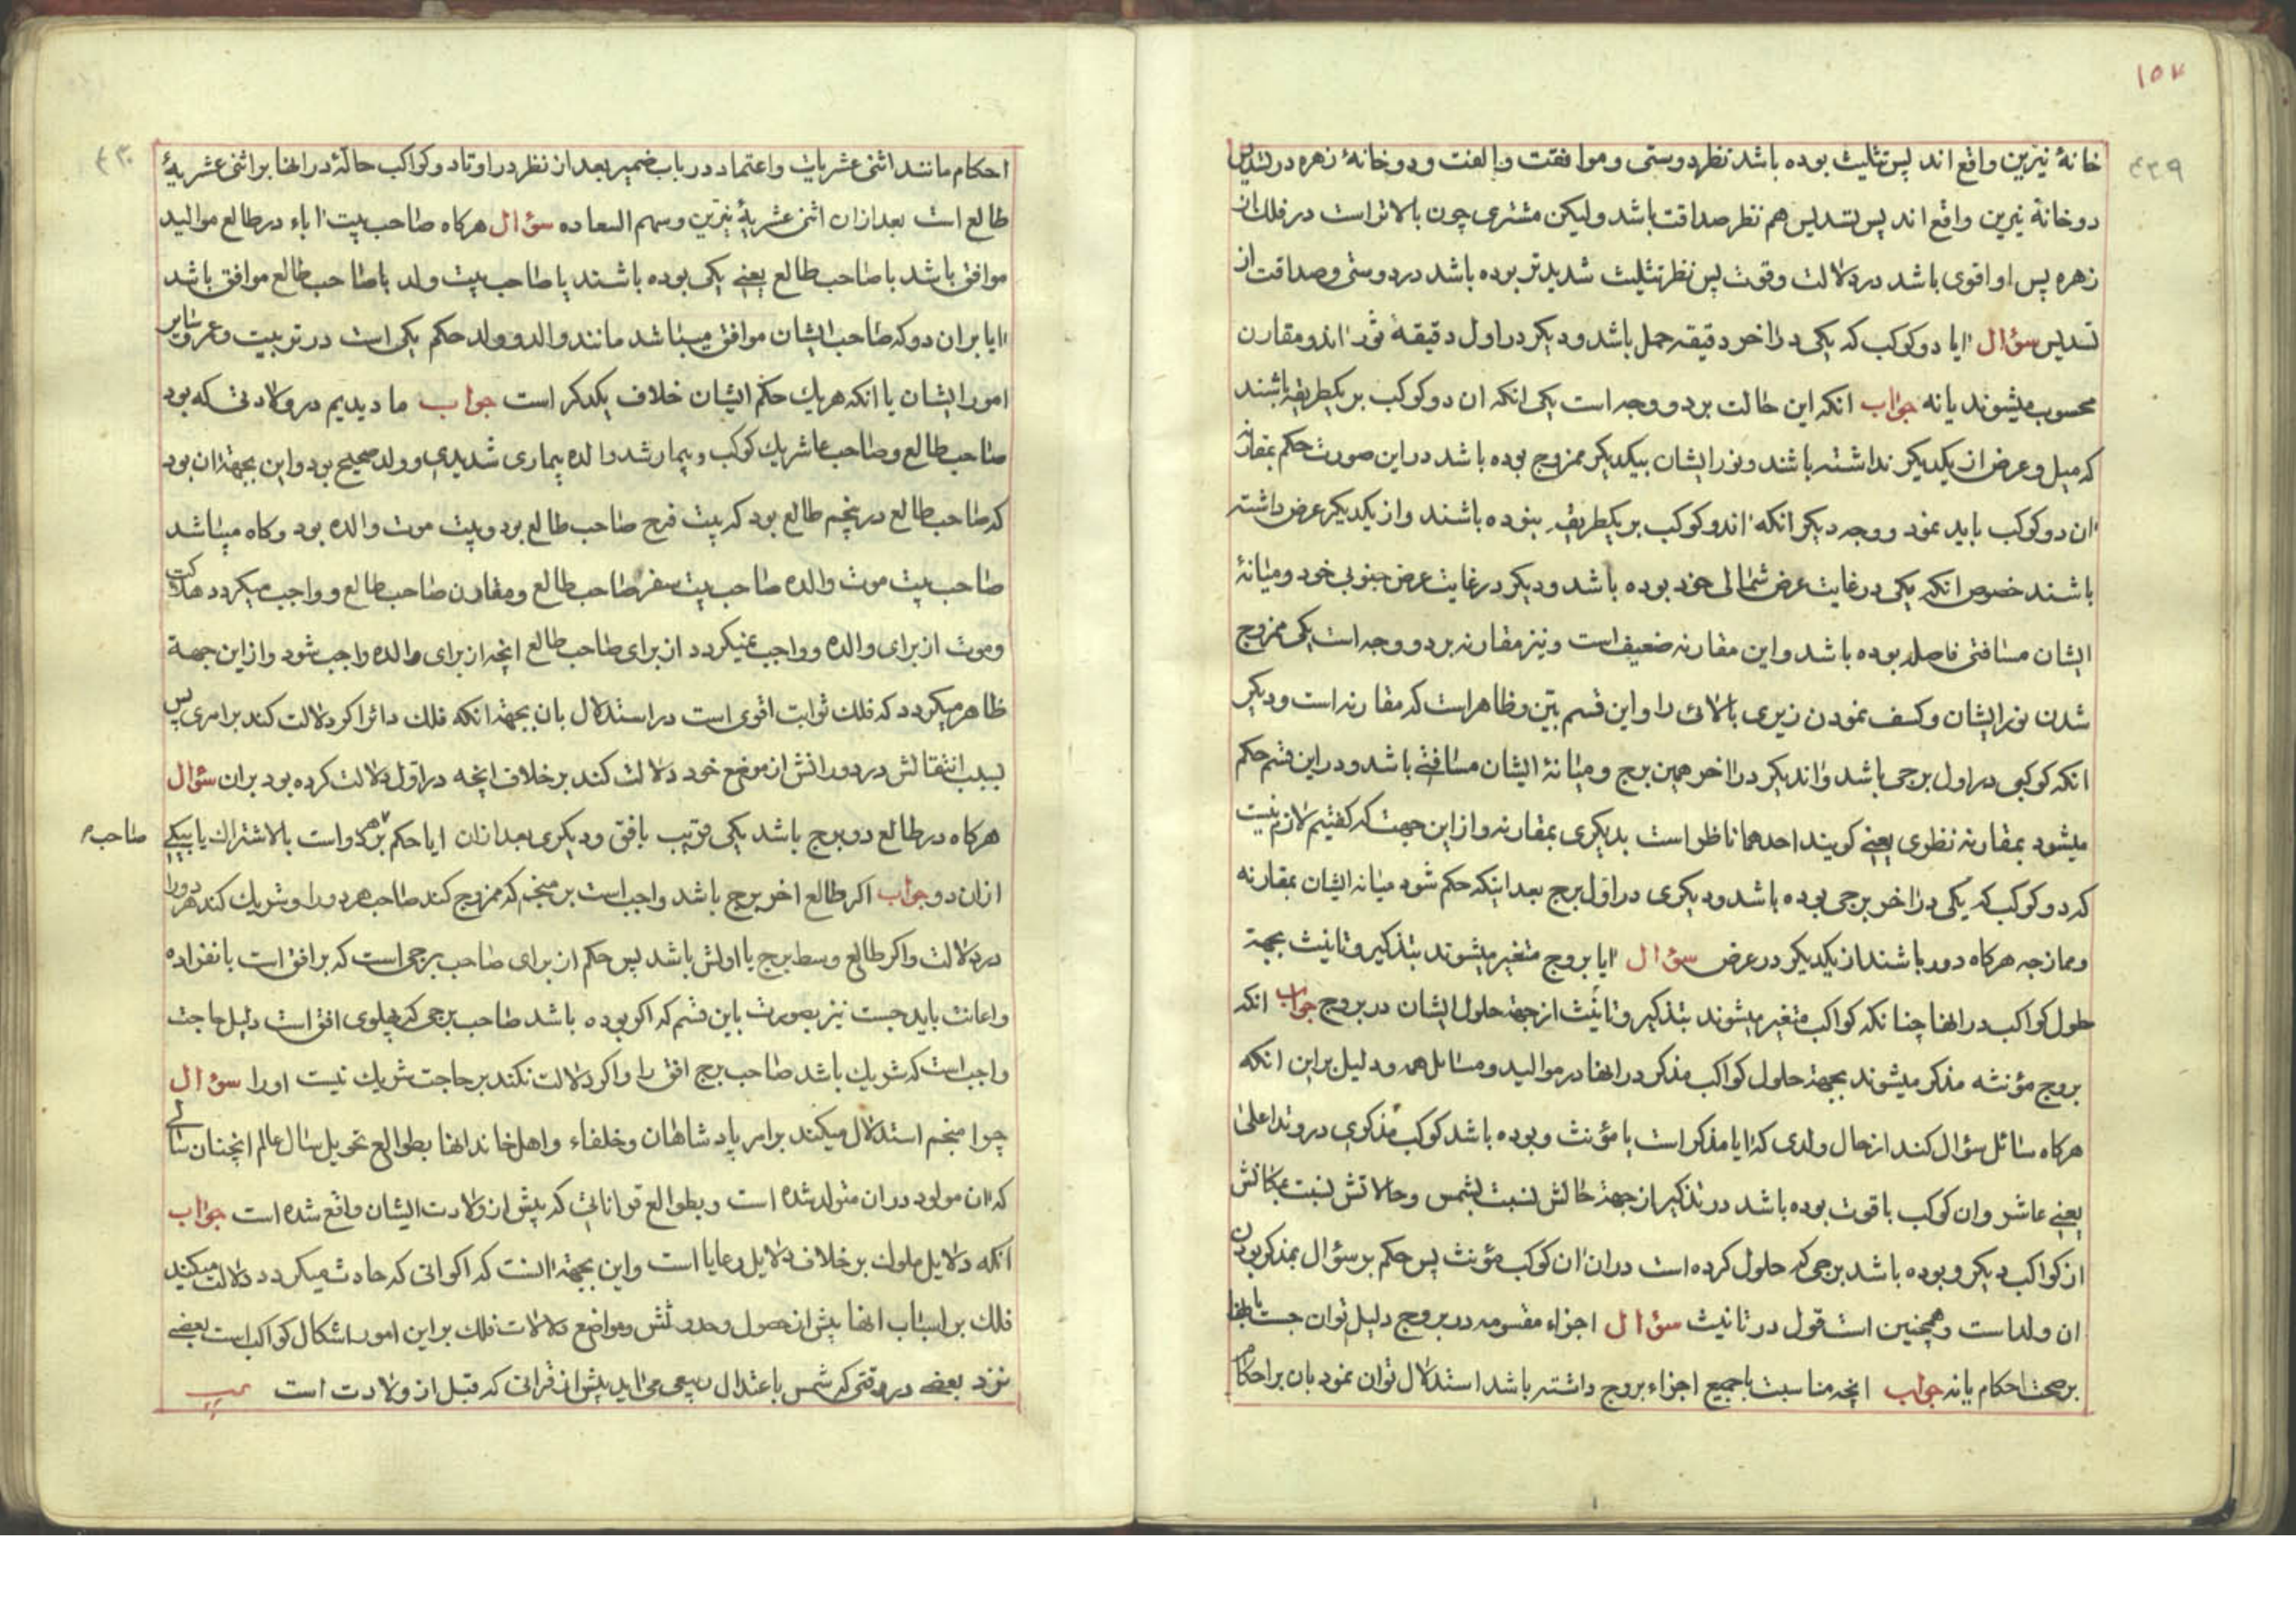 ۱۵۷
۴۳۹
خانهٔ نیرین واقع اند پس تثلیث بوده باشد نظر دوستی و موافقت و الفت و دو خانهٔ زهره در تسدیس
دو خانهٔ نیرین واقع اند پس تسدیس هم نظر صداقت باشد ولیکن مشتری چون بالاتر است در فلک از
زهره پس او اقوی باشد در دلالت و قوت پس نظر تثلیث شدیدتر بوده باشد در دوستی و صداقت از
تسدیس سؤال ایا دو کوکب که یکی در اخر دقیقه حمل باشد و دیکر در اول دقیقهٔ ثور اندو مقارن
محسوب میشوند یا نه جواب انکه این حالت بر دو وجه است یکی انکه ان دو کوکب بر یکطریقه باشند
که میل و عرض از یکدیکر نداشته باشند و نور ایشان بیکدیکر ممزوج بوده باشد در این صورت حکم بمقارنه
ان دو کوکب باید نمود و وجه دیکر انکه اندو کوکب بر یکطریقه نبوده باشند و از یکدیکر عرض داشته
باشند خصوص انکه یکی در غایت عرض شمالی خود بوده باشد و دیکر در غایت عرض جنوبی خود و میانهٔ
ایشان مسافتی فاصله بوده باشد و این مقارنه ضعیف است و نیز مقارنه بر دو وجه است یکی ممزوج
شدن نور ایشان و کسف نمودن زیری بالائی را و این قسم بیّن و ظاهر است که مقارنه است و دیکر
انکه کوکبی در اول برجی باشد و اندیکر در اخر همین برج و میانهٔ ایشان مسافتی باشد و در این قسم حکم
میشود بمقارنه نظری یعنی کویند احدهما ناظر است بدیکری بمقارنه و از این جهت که کفتیم لازم نیست
که دو کوکب که یکی در اخر برجی بوده باشد و دیکری در اول برج بعد اینکه حکم شود میانه ایشان بمقارنه
و ممازجه هرکاه دور باشند از یکدیکر در عرض سؤال ایا بروج متغیر میشوند بتذکیر و تانیث بجهة
حلول کواکب در انها چنانکه کواکب متغیر میشوند بتذکیر و تانیث از جهة حلول ایشان در بروج جواب انکه
بروج مؤنثه مذکر میشوند بجهة حلول کواکب مذکر در انها در موالید و مسائل همه و دلیل بر این انکه
هرکاه سائل سؤال کند از حال ولدی که ایا مذکر است یا مؤنث و بوده باشد کوکب مذکری در وتد اعلی
یعنی عاشر و ان کوکب با قوت بوده باشد در تذکیر از جهة حالش نسبت بشمس و حالاتش نسبت بمکانش
از کواکب دیکر و بوده باشد برجی که حلول کرده است در ان ان کوکب مؤنث پس حکم بر سؤال بمذکر بودن
ان ولد است و همچنین است قول در تانیث سؤال اجزاء مقسومه در بروج دلیل توان جست بانها
بر صحت احکام یا نه جواب انچه مناسبت با جمیع اجزاء بروج داشته باشد استدلال توان نمود بان بر احکام
۴۴۰
احکام مانند اثنی عشریات و اعتماد در باب ضمیر بعد از نظر در اوتاد و کواکب حالّهٔ در انها بر اثنی عشریهٔ
طالع است بعد ازان اثنی عشریهٔ نیرین و سهم السعاده سؤال هرکاه صاحب بیت اباء در طالع موالید
موافق باشد با صاحب طالع یعنی یکی بوده باشند یا صاحب بیت ولد با صاحب طالع موافق باشد
ایا بران دو که صاحب ایشان موافق میباشد مانند والد و ولد حکم یکی است در تربیت و عمر و سایر
امور ایشان یا انکه هریک حکم ایشان خلاف یکدکر است جواب ما دیدیم در ولادتی که بود
صاحب طالع و صاحب عاشر یک کوکب و بیمار شد والده بیماری شدیدی و ولد صحیح بود و این بجهة ان بود
که صاحب طالع در پنجم طالع بود که بیت فرح صاحب طالع بود و بیت موت والده بود و کاه میباشد
صاحب بیت موت والده صاحب بیت سفر صاحب طالع و مقارن صاحب طالع و واجب میکردد هلاکت
و موت از برای والده و واجب نمیکردد از برای صاحب طالع انچه از برای والده واجب شود و از این جهة
ظاهر میکردد که فلک ثوابت اقوی است در استدلال بان بجهة انکه فلک دائر اکر دلالت کند بر امری پس
بسبب انتقالش در دورانش از موضع خود دلالت کند بر خلاف انچه در اول دلالت کرده بود بران سؤال
هرکاه در طالع دو برج باشد یکی قریب بافق و دیکری بعد ازان ایا حکم بر هر دو است بالاشتراک یا بیکی
صاحب
ازان دو جواب اکر طالع اخر برج باشد واجب است بر منجم که ممزوج کند صاحب هر دو را و شریک کند هر دو را
در دلالت و اکر طالع وسط برج یا اولش باشد پس حکم از برای صاحب برجی است که بر افق است بانفراده
و اعانت باید جست نیز بصورت باین قسم که اکر بوده باشد صاحب برجی که پهلوی افق است دلیل حاجت
واجب است که شریک باشد صاحب برج افق را و اکر دلالت نکند بر حاجت شریک نیست او را سؤال
چرا منجم استدلال میکند بر امر پادشاهان و خلفاء و اهل خاندانها بطوالع تحویل سال عالم انچنان سالی
که ان مولود دران متولد شده است و بطوالع قراناتی که پیش از ولادت ایشان واقع شده است جواب
انکه دلایل ملوک بر خلاف دلایل رعایا است و این بجهة انست که اکوانی که حادث میکردد دلالت میکند
فلک بر اسباب انها پیش از حصول و حدوثش و مواضع دلالات فلک بر این امور اشکال کواکب است بعضی
نزد بعضی در وقتی که شمس باعتدال ربیعی می اید پیش از قرانی که قبل از ولادت است